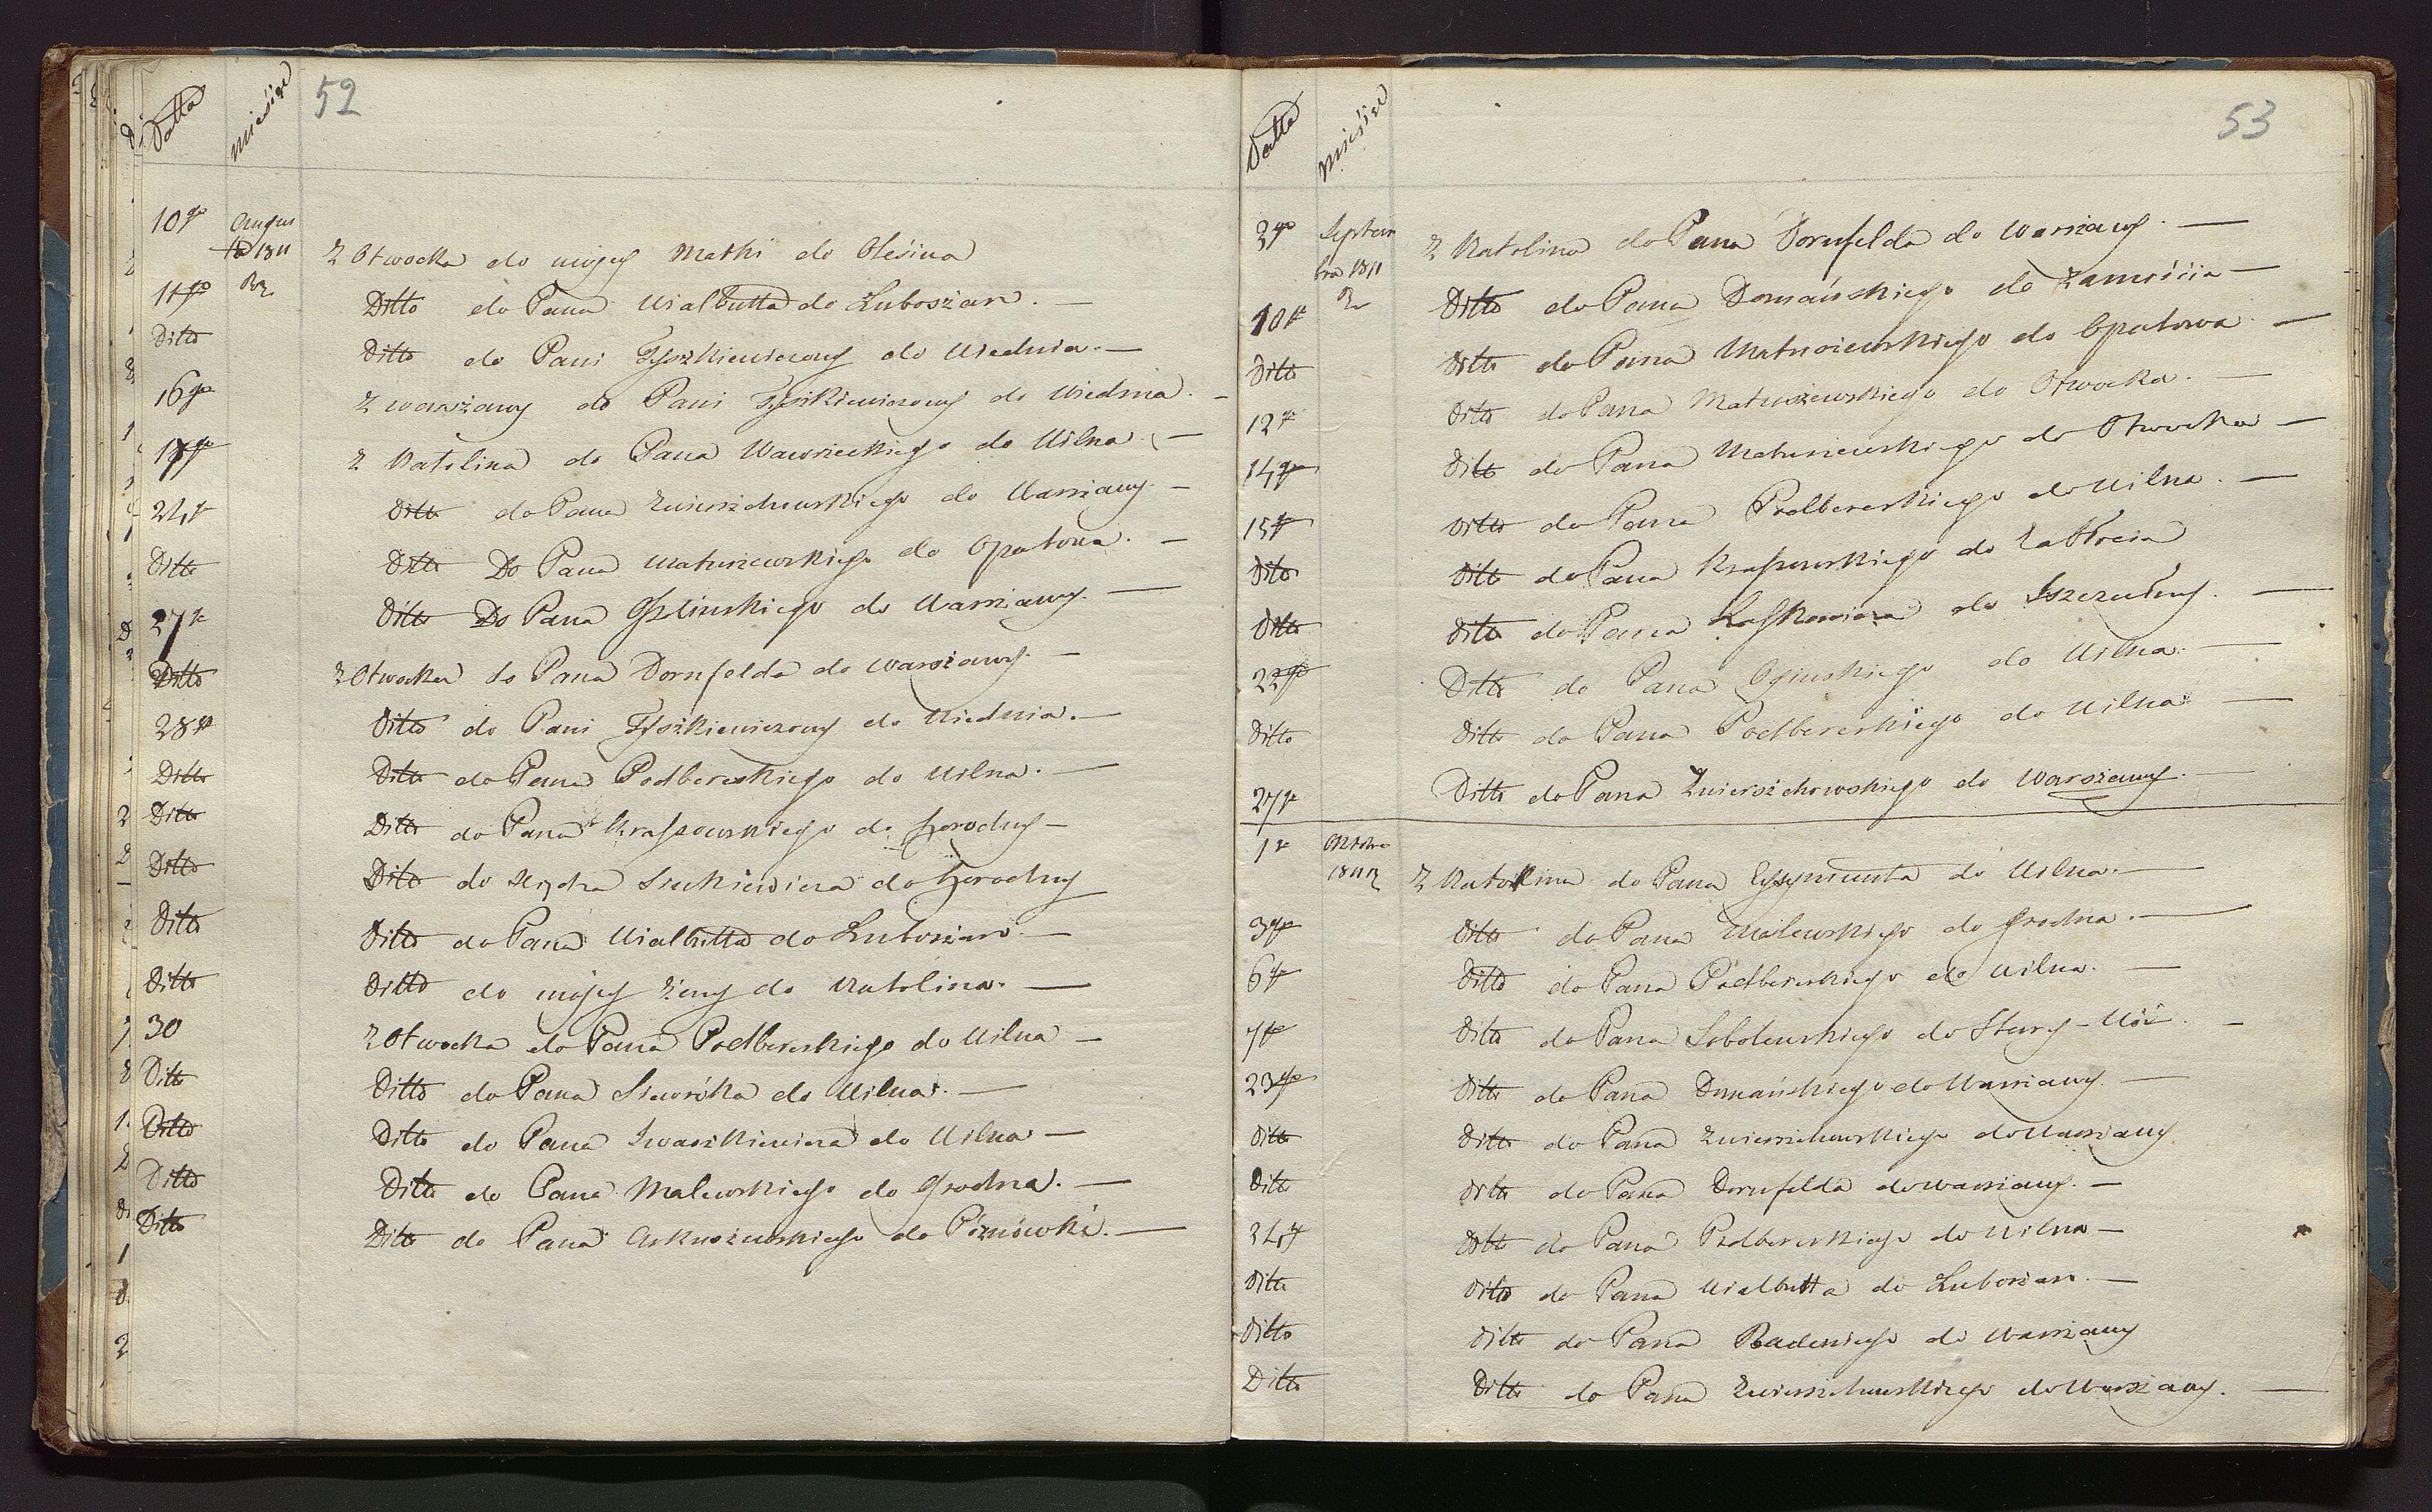 52
Datta Miesiąc
10go Augus
ta 1811 Z Otwocka do mojey Matki do Olesina
Ro
11go Ditto do Pana Wialbutta do Łuboszan. —
Ditto Ditto do Pani Tyszkiewiczowy do Wiednia. —
16go Z warszawy do Pani Tyszkiewiczowy do Wiednia. —
17go Z Natolina do Pana Wawrzeckiego do Wilna. —
24go Ditto do Pana Zwierzchowskiego do Warszawy. —
Ditto Ditto Do Pana Matuszewskiego do Opatowa. —
27go Ditto Do Pana Oszlinskiego do Warszawy. —
Ditto Z Otwocka do Pana Dornfelda do Warszawy. —
28go Ditto do Pani Tyszkiewiczowy do Wiednia. —
Ditto Ditto do Pana Podbereskiego do Wilna. —
Ditto Ditto do Pana Kraszowskiego do Horodny —
Ditto Ditto do Xiędza do Horodny
Ditto Ditto do Pana Wialbutta do Łuboszan —
Ditto Ditto do mojey żony do Natolina. —
30 Z Otwocka do Pana Podbereskiego do Wilna —
Ditto Ditto do Pana do Wilna. —
Ditto Ditto do Pana Iwaszkiewicza do Wilna —
Ditto Ditto do Pana Malewskiego do Grodna. —
Ditto Ditto do Pana do —
53
Datta Miesiąc
3go Septem
bra 1811 Z Natolina do Pana Dornfelda do Warszawy. —
Ro
10go Ditto do Pana Domańskiego do Zamościa —
Ditto Ditto do Pana Matuszewskiego do Opatowa —
12go Ditto do Pana Matuszewskiego do Otwocka. —
14go Ditto do Pana Matuszewskiego do Otwocka —
15go Ditto do Pana Podbereskiego do Wilna. —
Ditto Ditto do Pana Kraszowskiego do
Ditto Ditto do Pana do —
22go Ditto do Pana Oginskiego do Wilna. —
Ditto Ditto do Pana Podbereskiego do Wilna —
27go Ditto do Pana Zwierzchowskiego do Warszawy. —
1go Oktobra
1811 Ro Z Natolina do Pana Eysymunta do Wilna. —
3go Ditto do Pana Malewskiego do Grodna. —
6go Ditto do Pana Podbereskiego do Wilna. —
7go Ditto do Pana Sobolewskiego do Stary-Wśi —
23go Ditto do Pana Domańskiego do Warszawy. —
Ditto Ditto do Pana Zwierzchowskiego do Warszawy
Ditto Ditto do Pana Dornfelda do Warszawy. —
24go Ditto do Pana Podbereskiego do Wilna —
Ditto Ditto do Pana Wialbutta do Łuboszan. —
Ditto Ditto do Pana Badeniego do Warszawy
Ditto Ditto do Pana Zwierzchowskiego do Warszawy. —